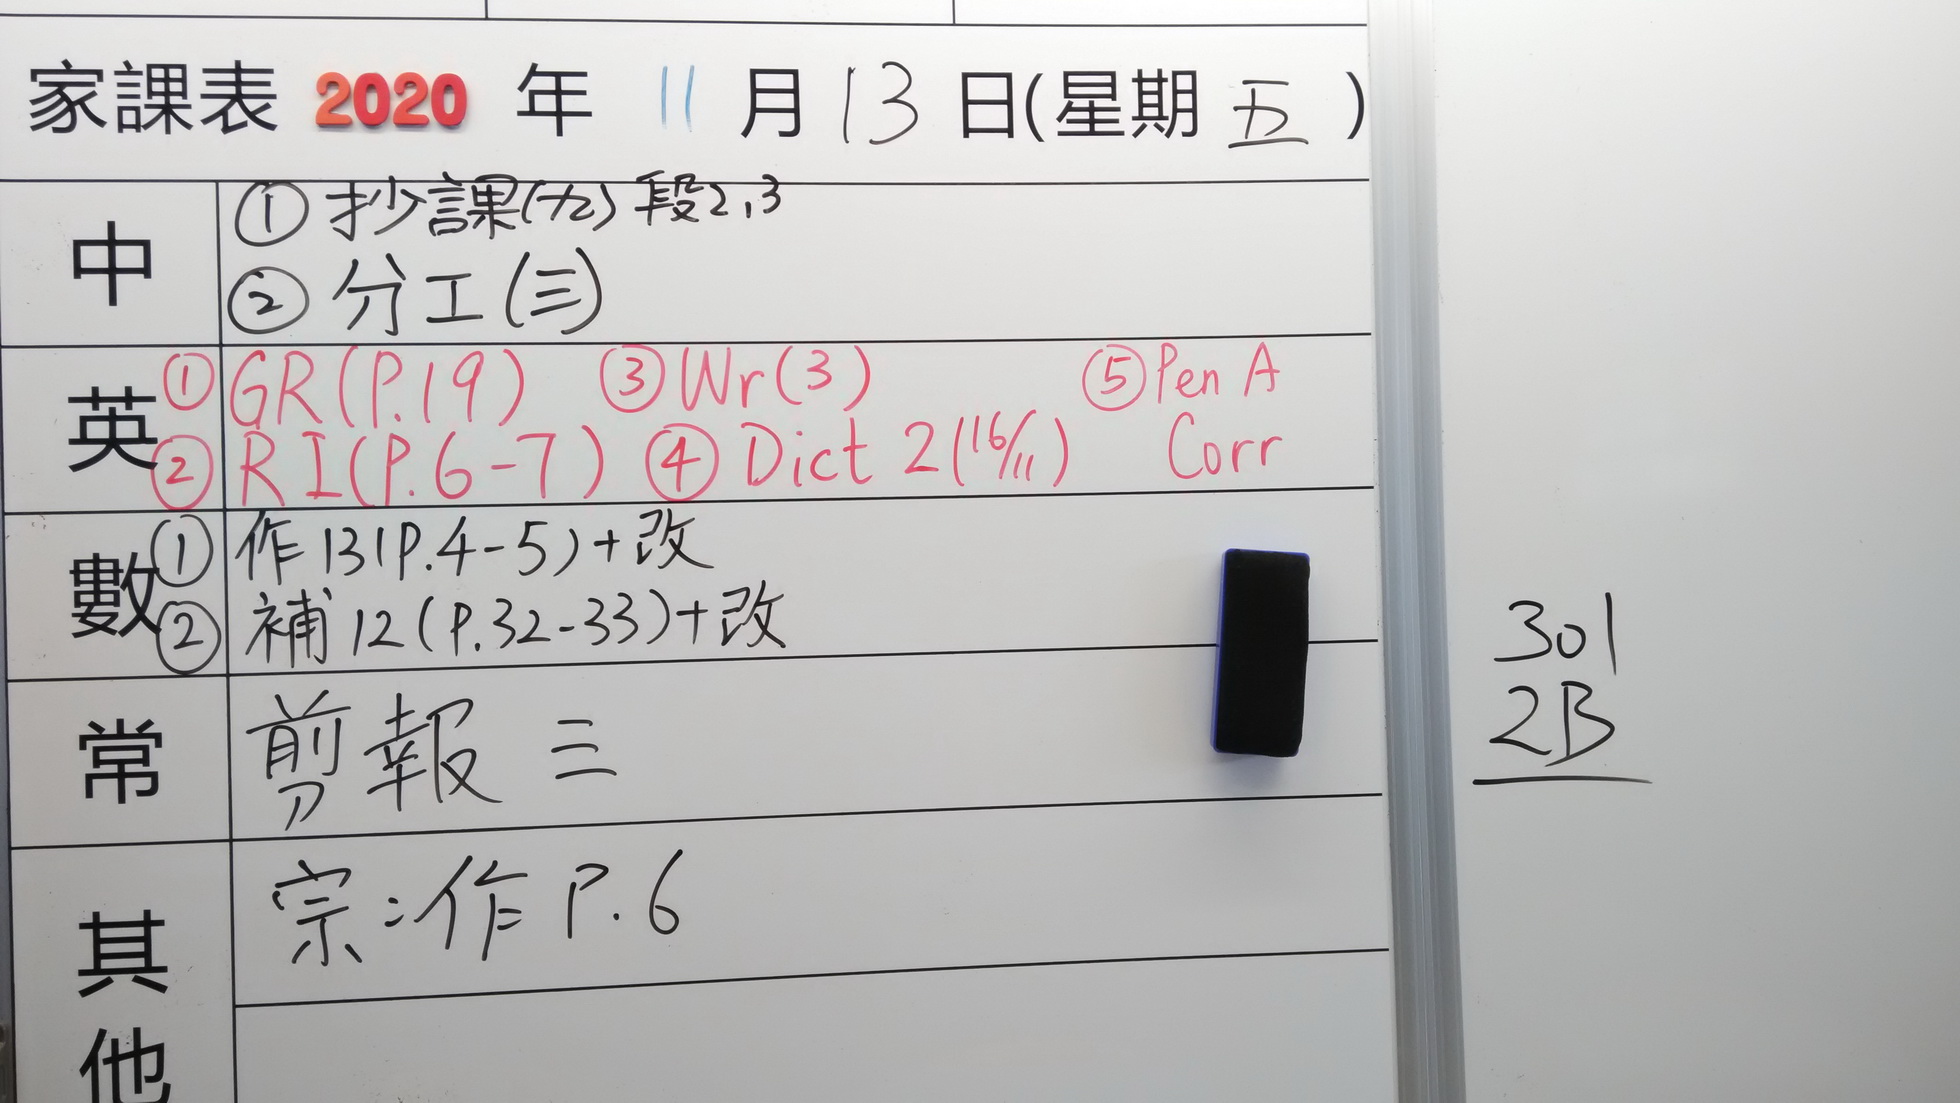 家課表 2020 年 11 月 13 日(星期 五 )
中
① 抄課(九) 段2,3
② 分工(三)
英
① GR(P.19) ③ Wr(3) ⑤ Pen A
② RI(P.6-7) ④ Dict 2(16/11) Corr
數
① 作13(P.4-5)+改
② 補12(P.32-33)+改
常
剪報 三
其他
宗:作 P.6
301
2B